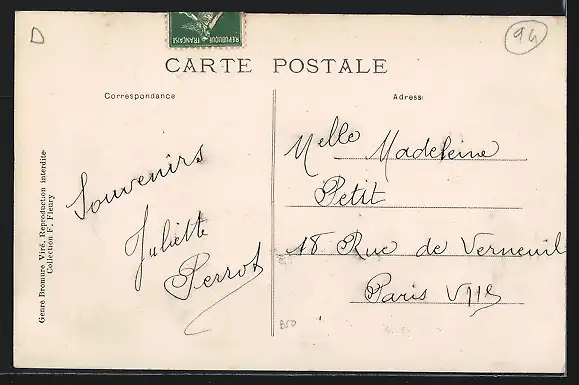 D
94
REPUBLIQUE FRANCAISE
CARTE POSTALE
Correspondance
Adresse
Souvenirs
Juliette
Perrot
Melle Madeleine
Petit
18 Rue de Verneuil
Paris VIIe
Genre Bromure Viré, Reproduction interdite
Collection F. Fleury